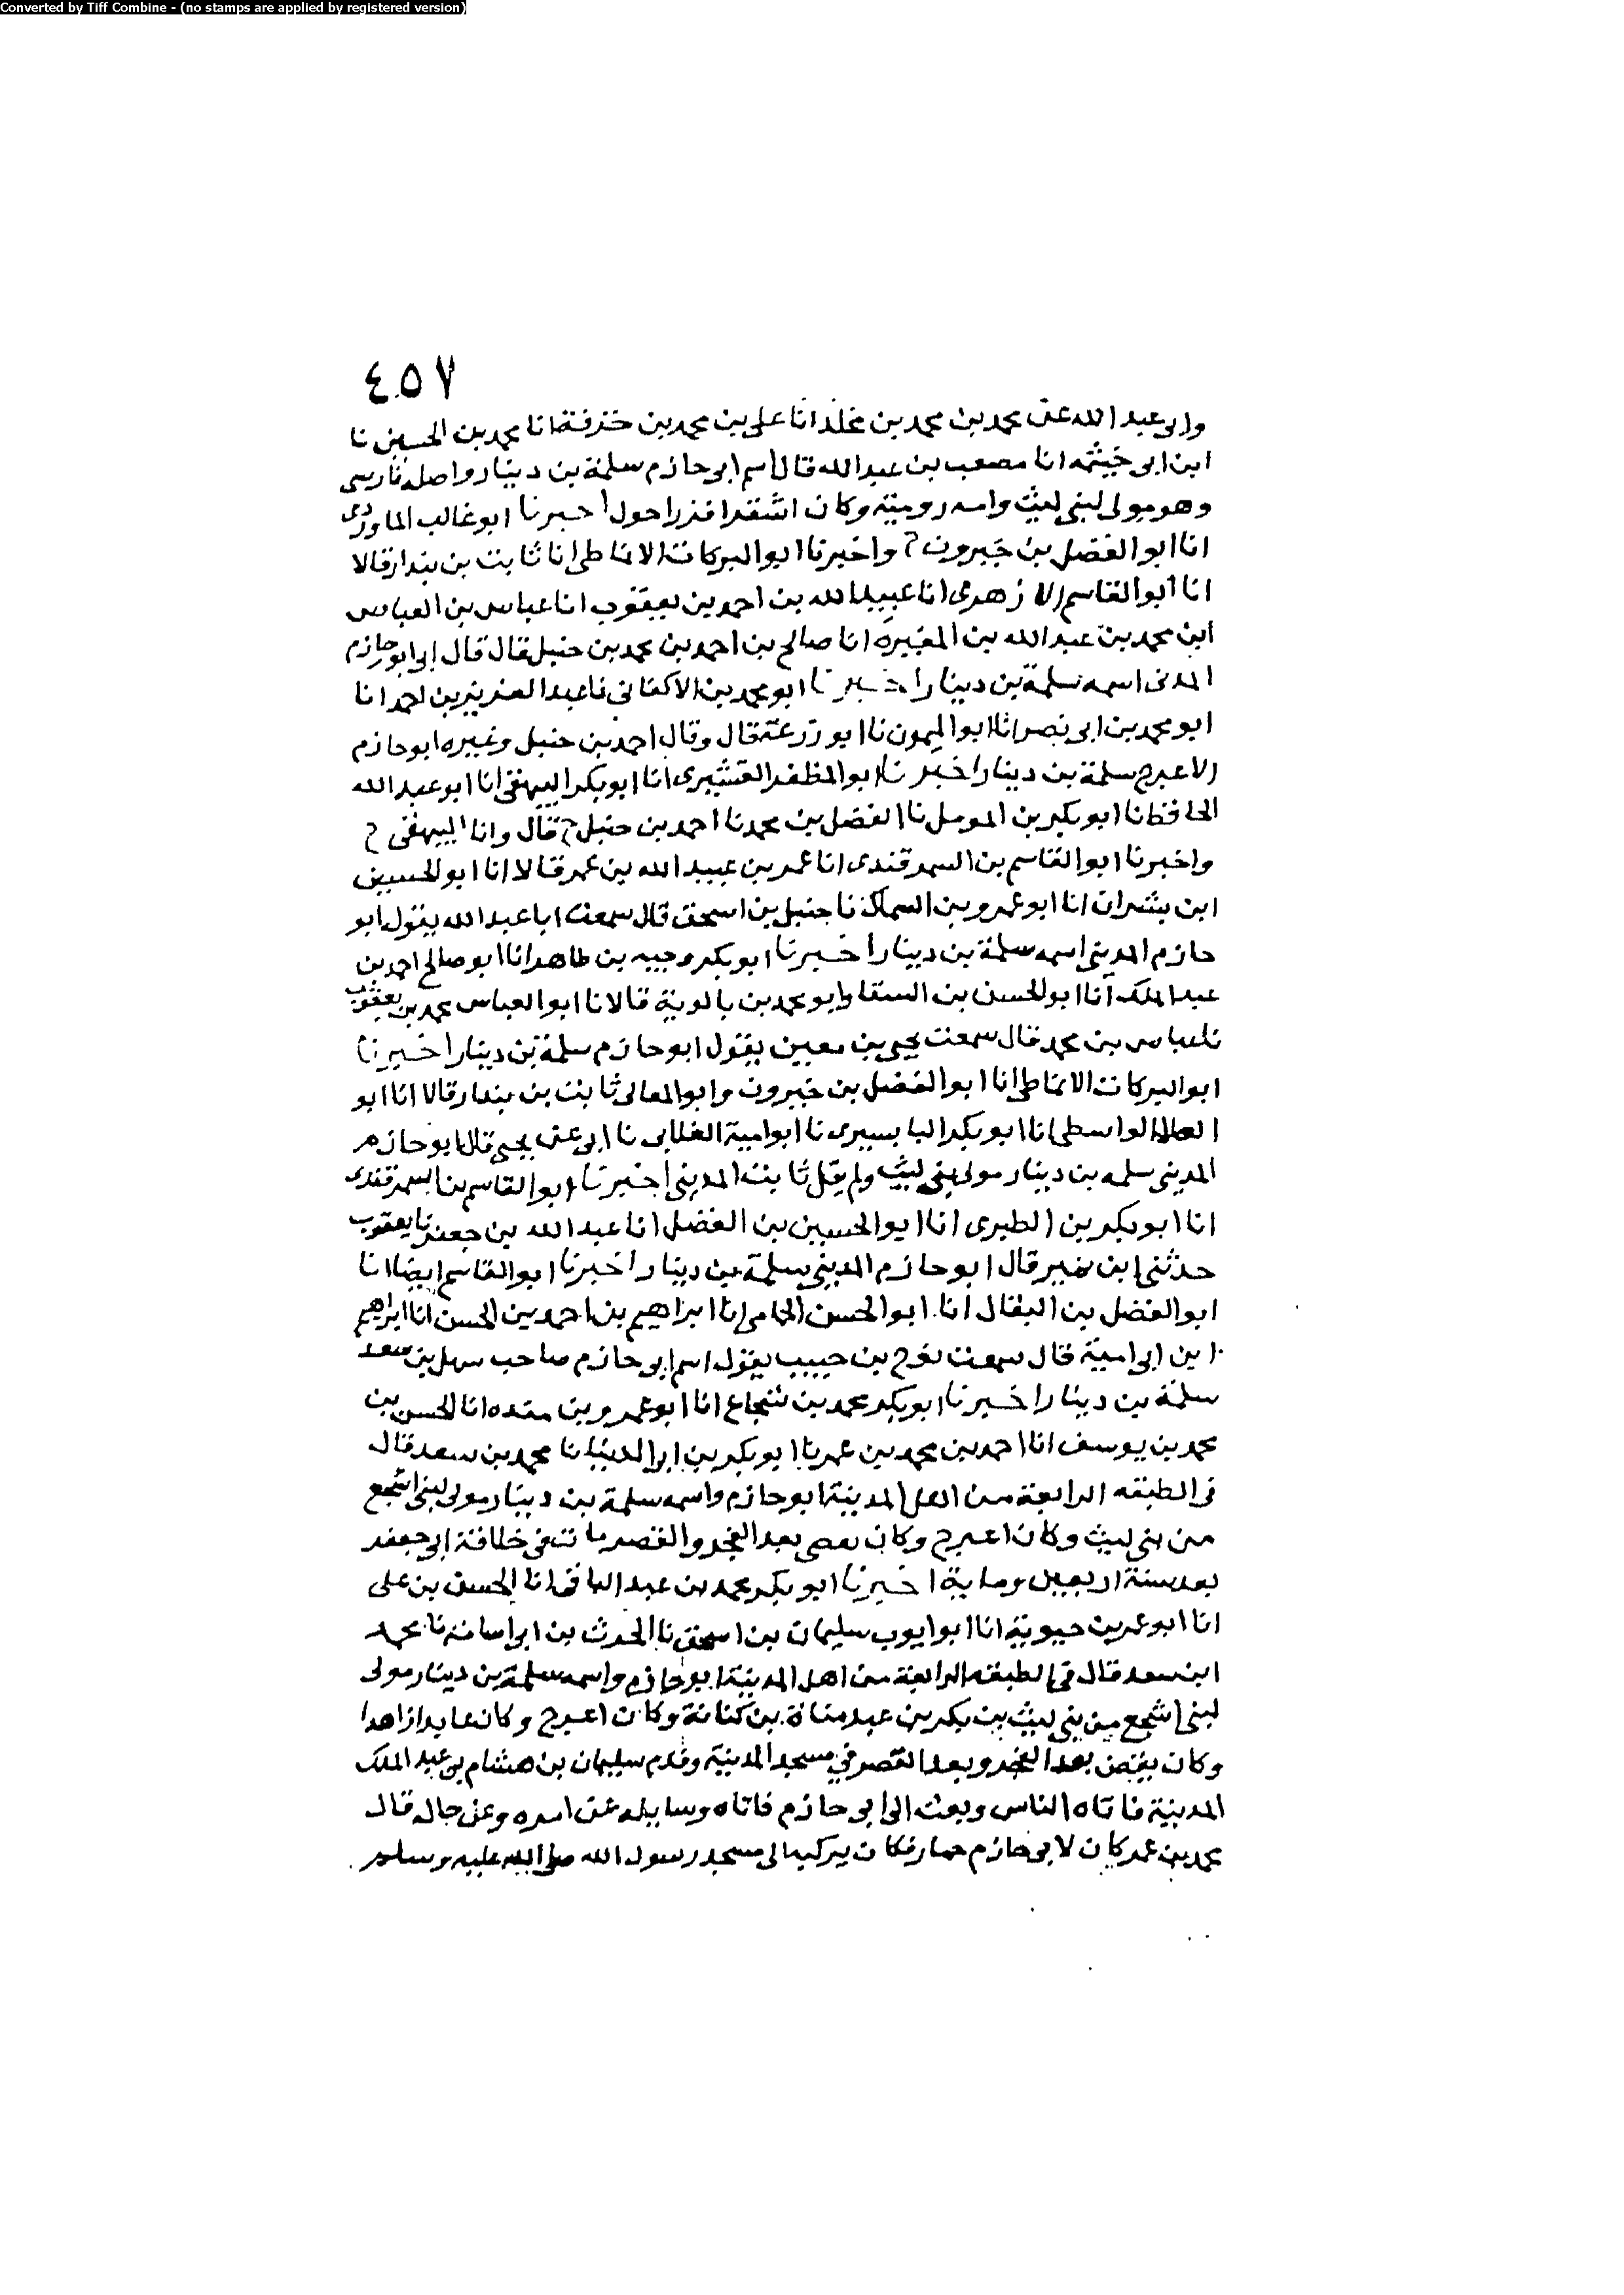 Converted by Tiff Combine - (no stamps are applied by registered version)
٤٥٧
وابى عبد الله عن محمد بن محمد بن مخلد انا على بن محمد بن خزفة انا محمد بن الحسين نا
ابن ابى خيثمه انا مصعب بن عبد الله قال اسم ابى حازم سلمة بن دينار واصله فارسى
وهو مولى لبنى ليث وامه رومية وكان اشقر افزر احول اخبرنا ابو غالب الماوردى
انا ابو الفضل بن خيرون ح واخبرنا ابو البركات الانماطى انا ثابت بن بندار قالا
انا ابو القاسم الازهرى انا عبيد الله بن احمد بن يعقوب انا عباس بن العباس
ابن محمد بن عبد الله بن المغيره انا صالح بن احمد بن محمد بن حنبل قال قال ابى ابو حازم
المدنى اسمه سلمة بن دينار اخبرنا ابو محمد بن الاكفانى نا عبد العزيز بن احمد انا
ابو محمد بن ابى نصر انا ابو الميمون نا ابو زرعة قال وقال احمد بن حنبل وغيره ابو حازم
الاعرج سلمة بن دينار اخبرنا ابو المظفر القشيرى انا ابو بكر البيهقى انا ابو عبد الله
الحافظ انا ابو بكر بن المومل نا الفضل بن محمد نا احمد بن حنبل ح قال وانا البيهقى ح
واخبرنا ابو القاسم بن السمرقندى انا عمر بن عبيد الله بن عمر قالا انا ابو الحسين
ابن بشران انا ابو عمرو بن السماك نا حنبل بن اسحق قال سمعت ابا عبد الله يقول ابو
حازم المدينى اسمه سلمة بن دينار اخبرنا ابو بكر وجيه بن طاهر انا ابو صالح احمد بن
عبد الملك انا ابو الحسن بن السقا وابو محمد بن بالوية قالا نا ابو العباس محمد بن يعقوب
نا عباس بن محمد قال سمعت يحيى بن معين يقول ابو حازم سلمة بن دينار اخبرنا
ابو البركات الانماطى انا ابو الفضل بن خيرون وابو المعالى ثابت بن بندار قالا انا ابو
العلا الواسطى انا ابو بكر البابسيرى نا ابو امية الغلابى نا ابى عن يحيى قال ابو حازم
المدينى سلمه بن دينار مولى بنى ليث ولم يقل ثابت المدينى اخبرنا ابو القاسم بن السمرقندى
انا ابو بكر بن الطبرى انا ابو الحسين بن الفضل انا عبد الله بن جعفر نا يعقوب
حدثنى ابن نمير قال ابو حازم المدينى سلمة بن دينار اخبرنا ابو القاسم ايضا انا
ابو الفضل بن البقال انا ابو الحسن الحمامى انا ابراهيم بن احمد بن الحسن انا ابراهيم
ابن ابى امية قال سمعت نوح بن حبيب يقول اسم ابى حازم صاحب سهل بن سعد
سلمة بن دينار اخبرنا ابو بكر محمد بن شجاع انا ابو عمرو بن منده انا الحسن بن
محمد بن يوسف انا احمد بن محمد بن عمر نا ابو بكر بن ابى الدنيا نا محمد بن سعد قال
فى الطبقه الرابعة من اهل المدينة ابو حازم واسمه سلمة بن دينار مولى لبنى اشجع
من بنى ليث وكان اعرج وكان يقص بعد الفجر والعصر مات فى خلافة ابى جعفر
بعد سنة اربعين وماية اخبرنا ابو بكر محمد بن عبد الباقى انا الحسن بن على
انا ابو عمر بن حيوية انا ابو ايوب سليمان بن اسحق نا الحرث بن ابى اسامة نا محمد
ابن سعد قال فى الطبقه الرابعة من اهل المدينة ابو حازم واسمه سلمة بن دينار مولى
لبنى اشجع من بنى ليث بن بكر بن عبد مناة بن كنانة وكان اعرج وكان عابدا زاهدا
وكان يقص بعد الفجر وبعد العصر فى مسجد المدينة وقدم سليمان بن هشام بن عبد الملك
المدينة فاتاه الناس وبعث الى ابى حازم فاتاه وسايله عن امره وعن حاله قال
محمد بن عمر كان لابى حازم حمار فكان يركبه الى مسجد رسول الله صلى الله عليه وسلم